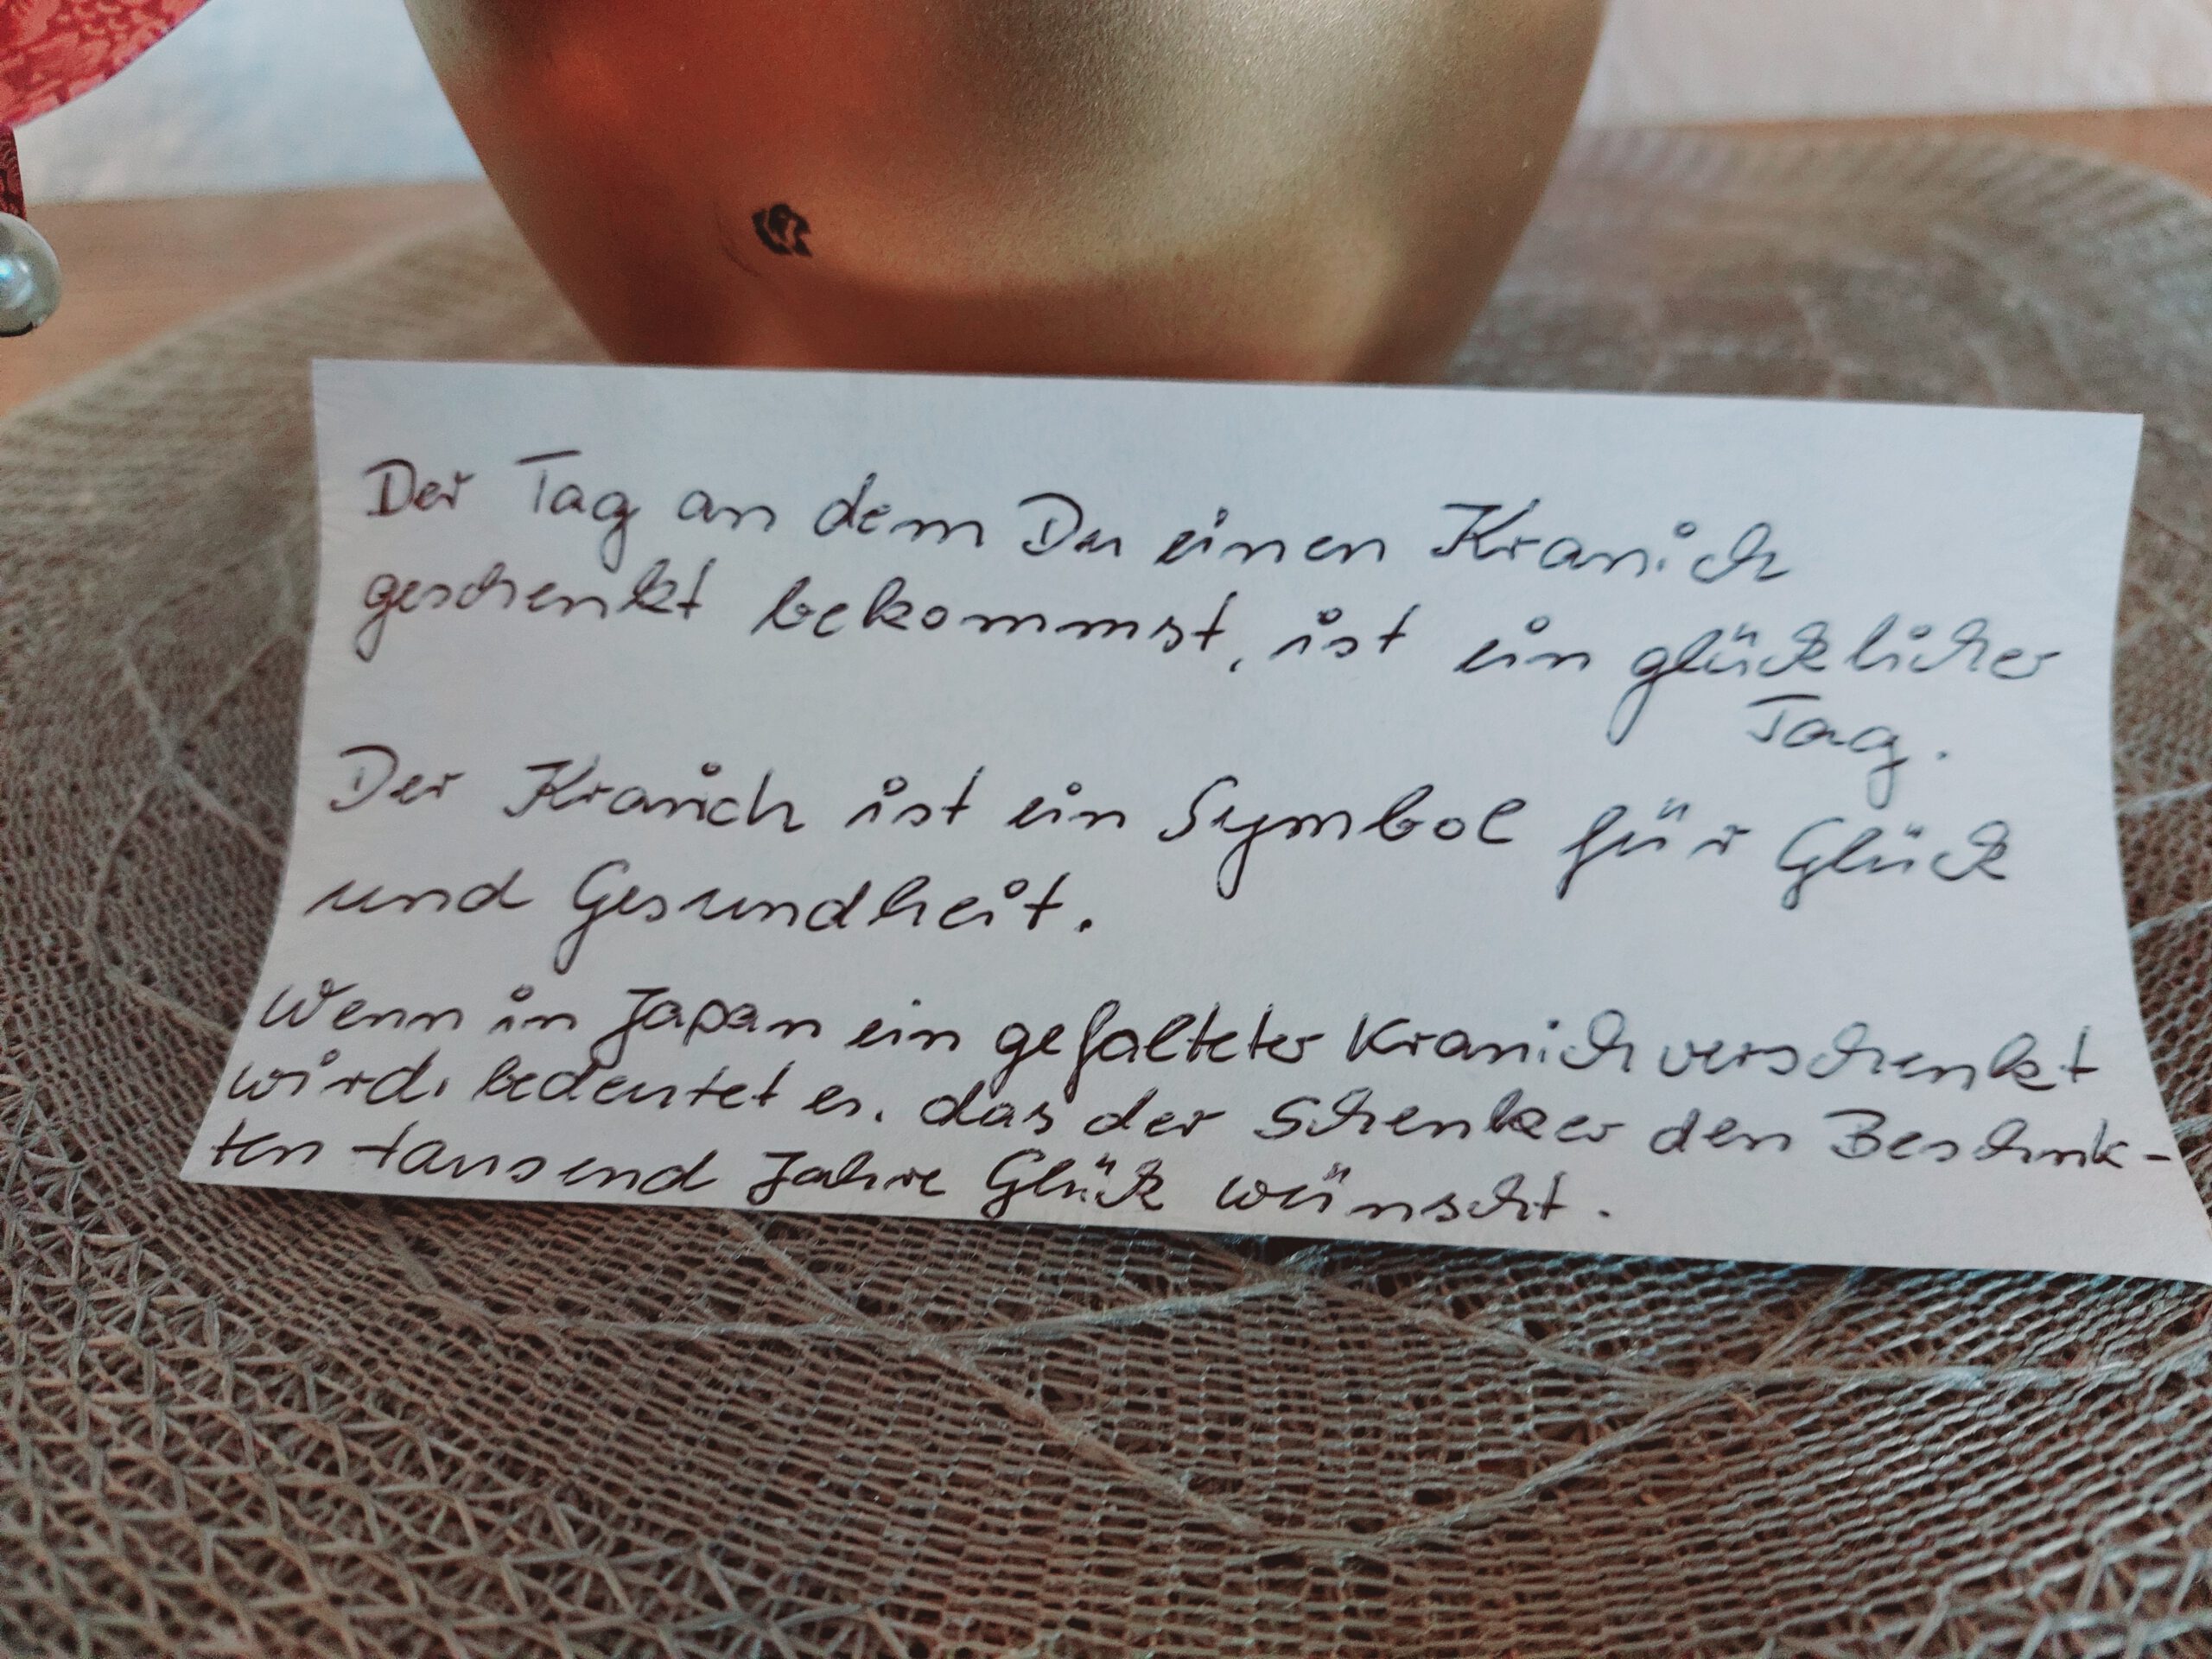 Der Tag an dem Du einen Kranich
geschenkt bekommst, ist ein glücklicher
Tag.
Der Kranich ist ein Symbol für Glück
und Gesundheit.
Wenn in Japan ein gefalteter Kranich verschenkt
wird, bedeutet es, das der Schenker den Beschnk-
ten tausend Jahre Glück wünscht.